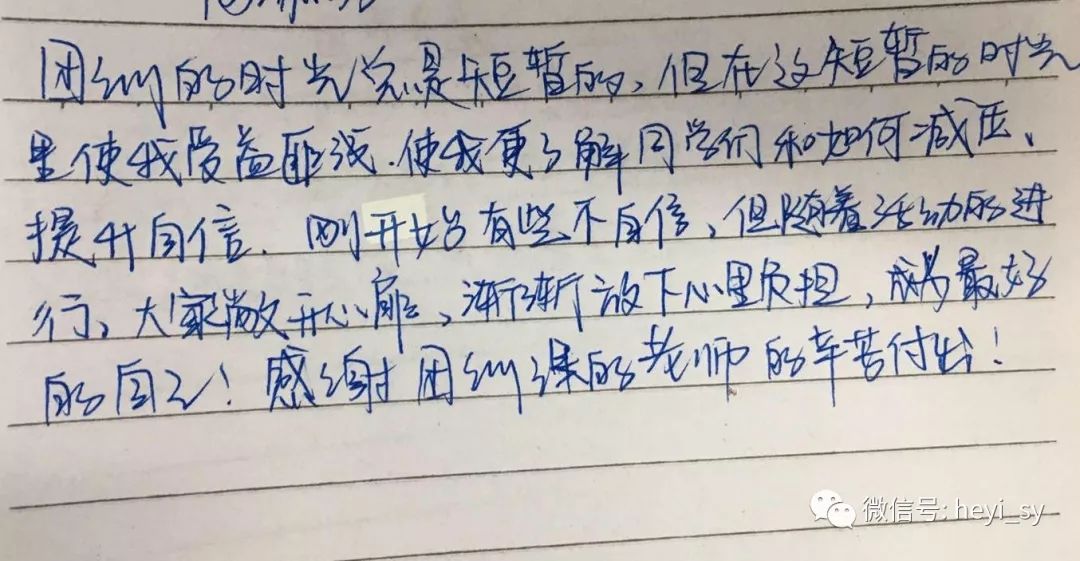 团训的时光总是短暂的，但在这短暂的时光
里使我受益匪浅.使我更了解同学们和如何减压、
提升自信.刚开始有些不自信，但随着活动的进
行，大家敞开心扉，渐渐放下心里负担，成为最好
的自己！感谢团训课的老师的辛苦付出！
微信号: heyi_sy